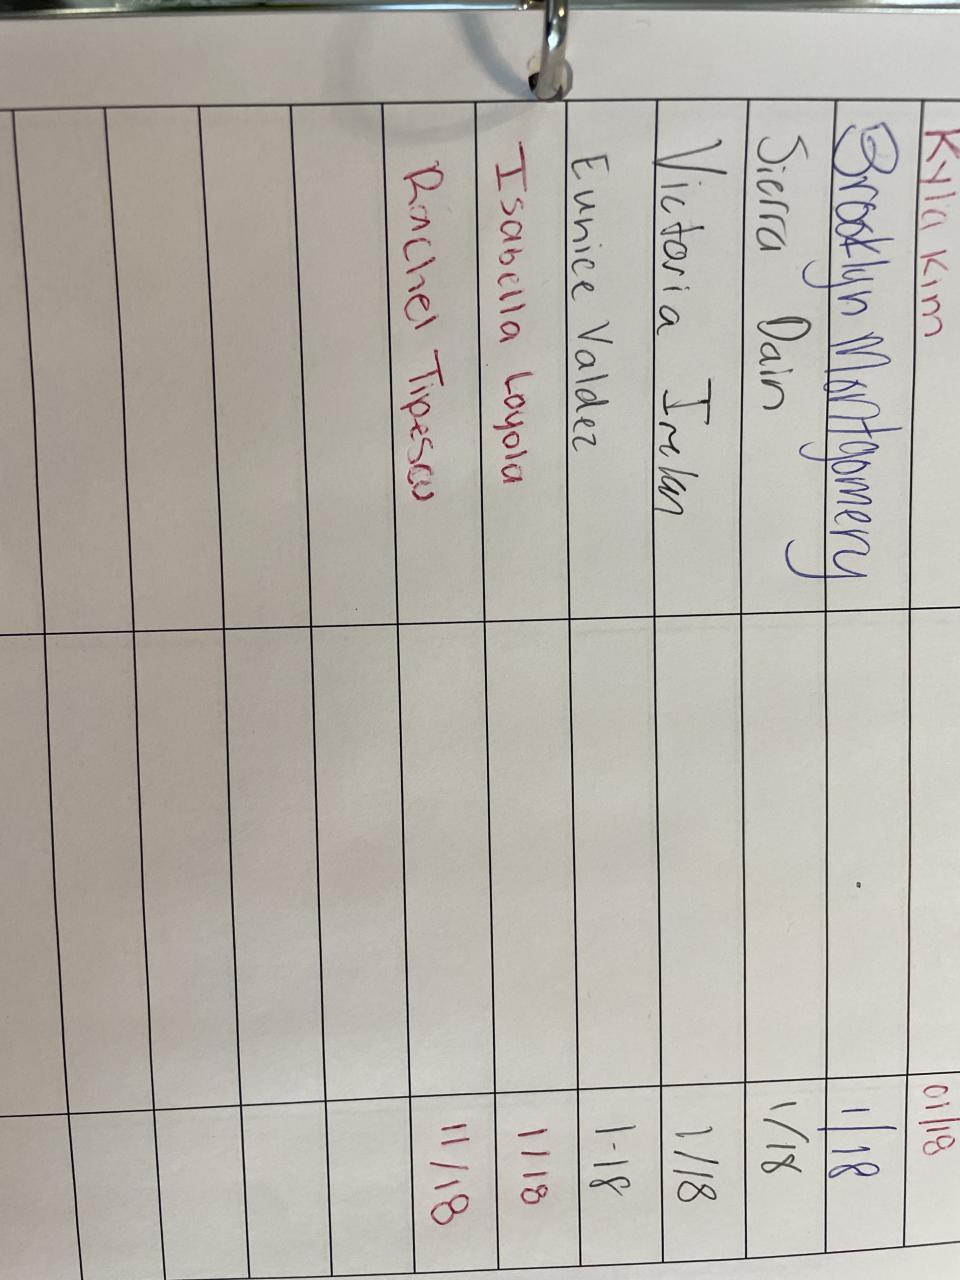 Kyla Kim 01/18
Brooklyn Montgomery 1/18
Sierra Dain 1/18
Victoria Irelan 1/18
Eunice Valdez 1-18
Isabella Loyola 1/18
Rachel 11/18